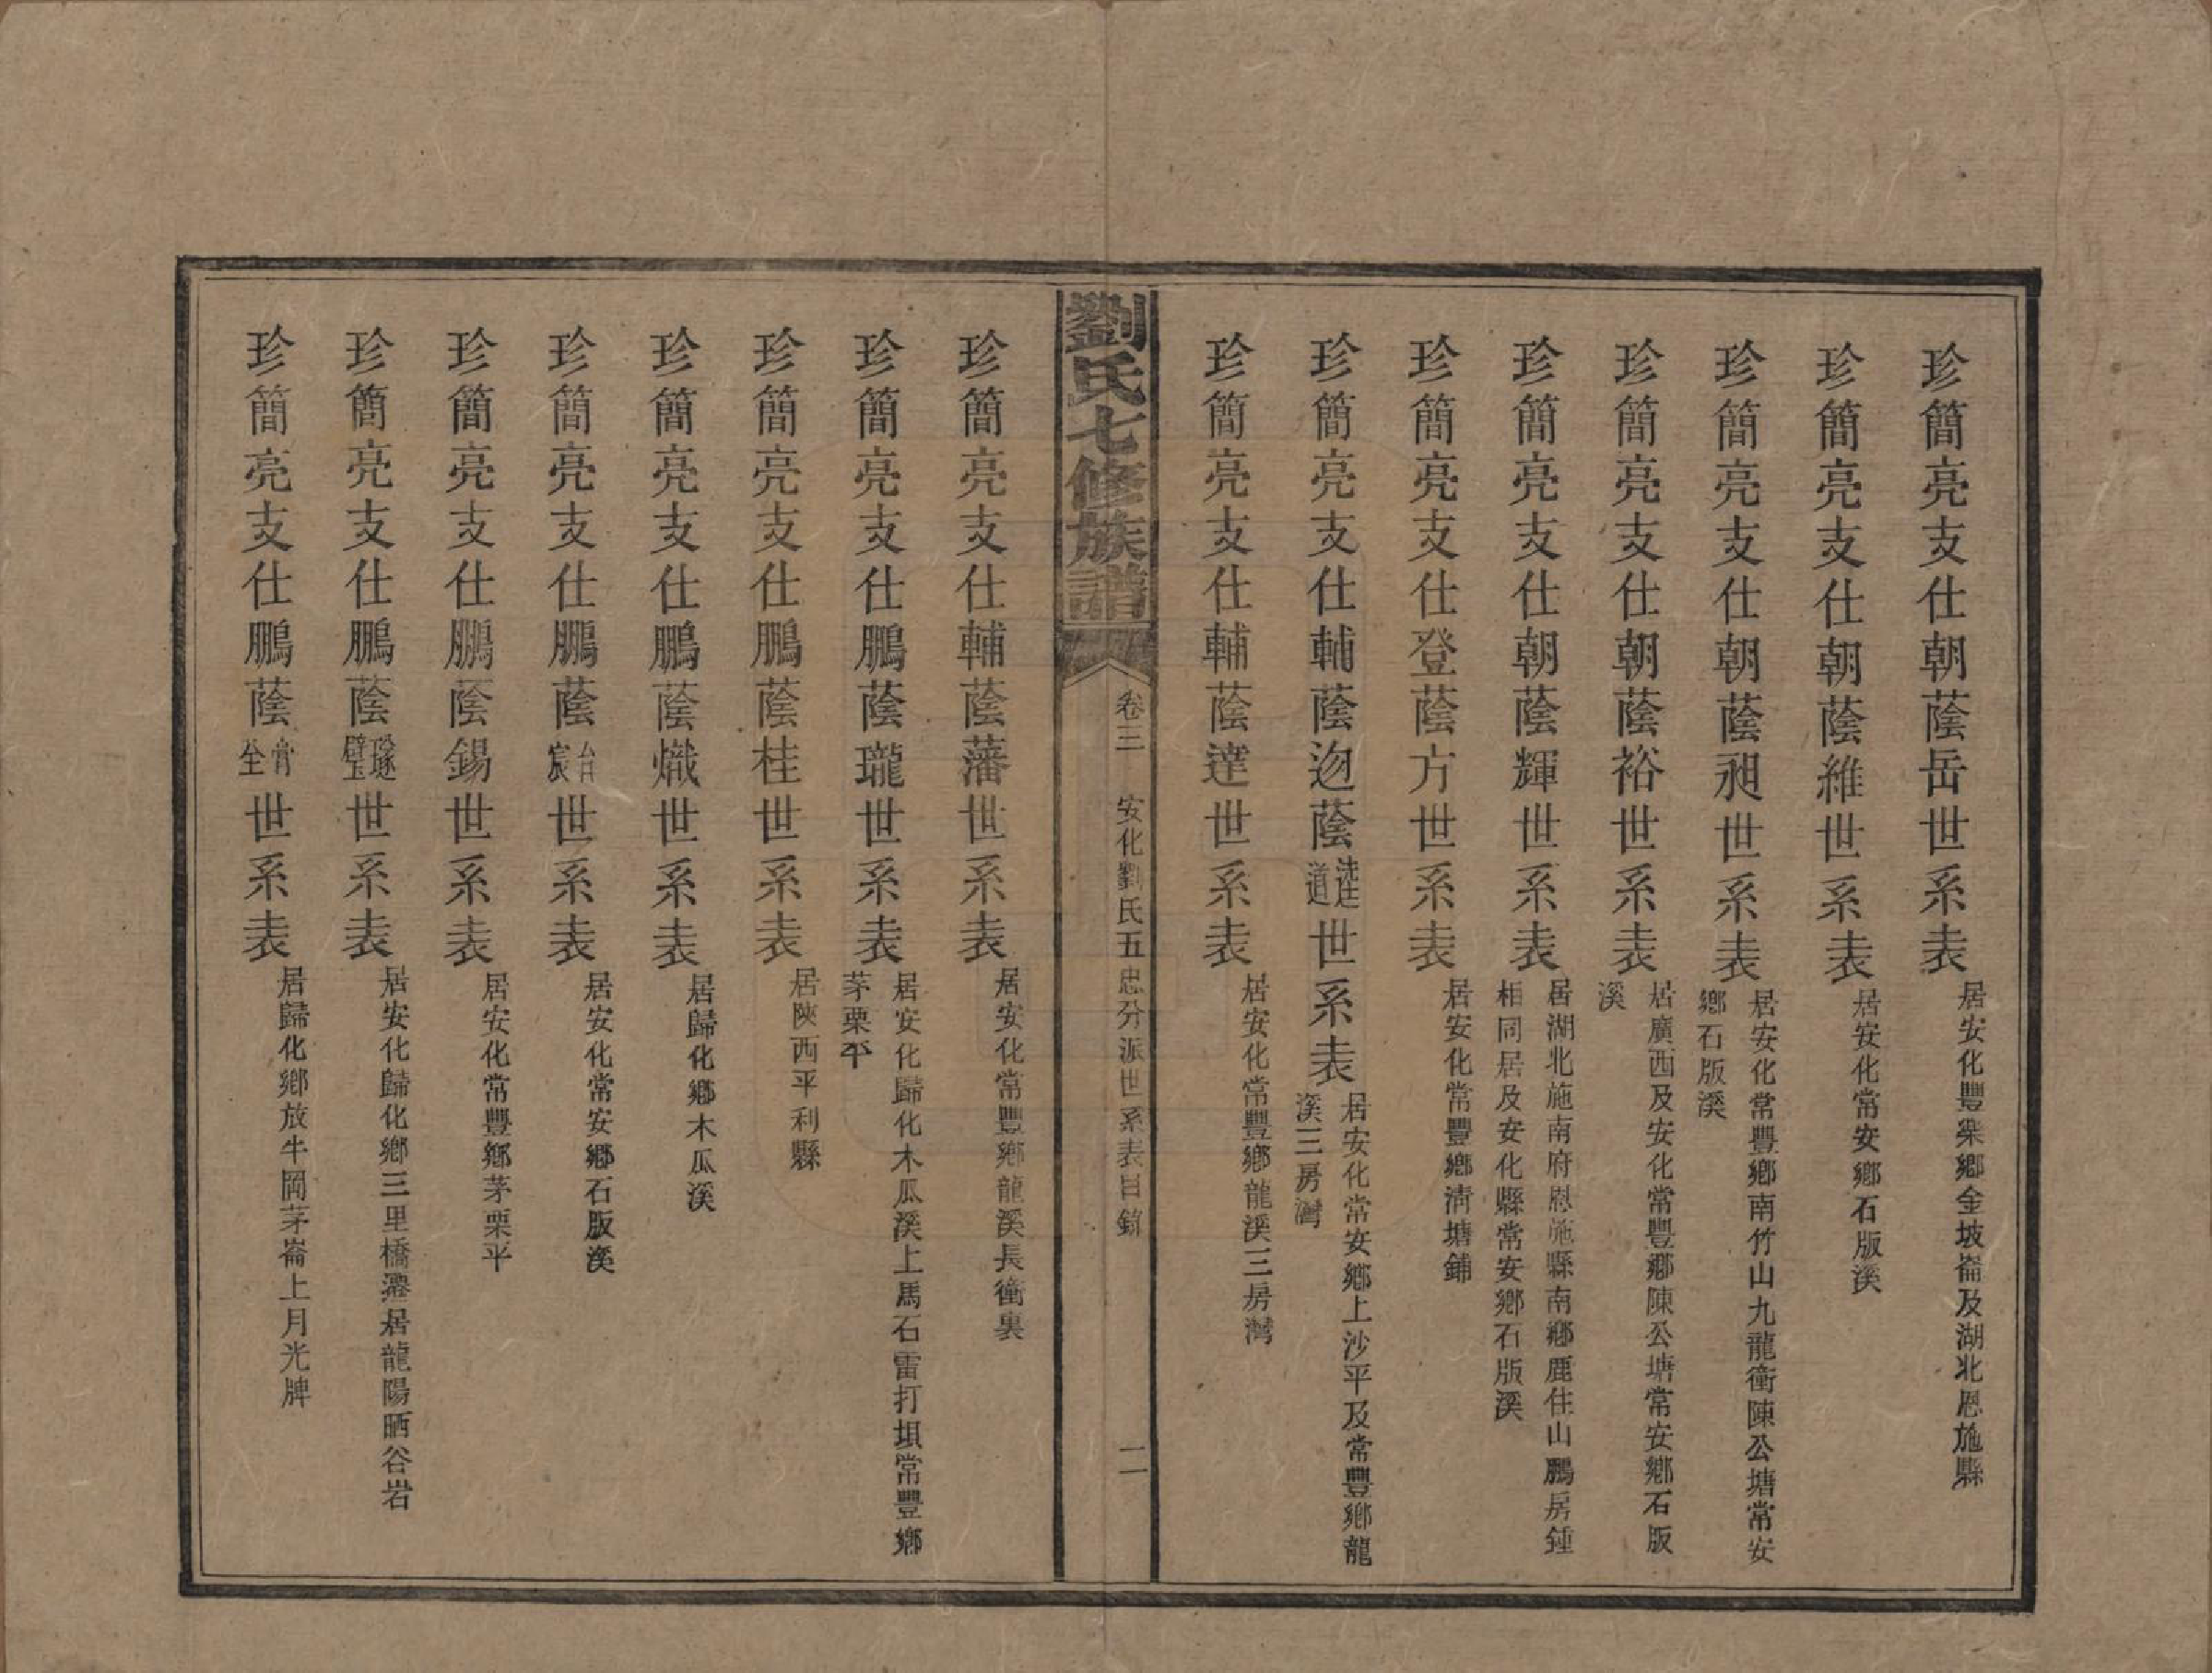 珍簡亮支仕朝蔭岳世系表 居安化豐樂鄉金坡崙及湖北恩施縣
珍簡亮支仕朝蔭維世系表 居安化常安鄉石版溪
珍簡亮支仕朝蔭昶世系表 居安化常豐鄉南竹山九龍衝陳公塘常安
鄉石版溪
珍簡亮支仕朝蔭裕世系表 居廣西及安化常豐鄉陳公塘常安鄉石版
溪
珍簡亮支仕朝蔭輝世系表 居湖北施南府恩施縣南鄉鹿住山鵬房鍾
相同居及安化縣常安鄉石版溪
珍簡亮支仕登蔭方世系表 居安化常豐鄉清塘鋪
珍簡亮支仕輔蔭迩蔭蓬道世系表 居安化常安鄉上沙平及常豐鄉龍
溪三房灣
珍簡亮支仕輔蔭達世系表 居安化常豐鄉龍溪三房灣
劉氏七修族譜 卷三 安化劉氏五忠分派世系表目錄 二
珍簡亮支仕輔蔭藩世系表 居安化常豐鄉龍溪長衝裏
珍簡亮支仕鵬蔭瓏世系表 居安化歸化木瓜溪上馬石雷打垻常豐鄉
茅栗平
珍簡亮支仕鵬蔭桂世系表 居陝西平利縣
珍簡亮支仕鵬蔭熾世系表 居歸化鄉木瓜溪
珍簡亮支仕鵬蔭台宸世系表 居安化常安鄉石版溪
珍簡亮支仕鵬蔭錫世系表 居安化常豐鄉茅栗平
珍簡亮支仕鵬蔭璲璧世系表 居安化歸化鄉三里橋遷居龍陽晒谷岩
珍簡亮支仕鵬蔭世系表 居歸化鄉放牛岡茅崙上月光脾